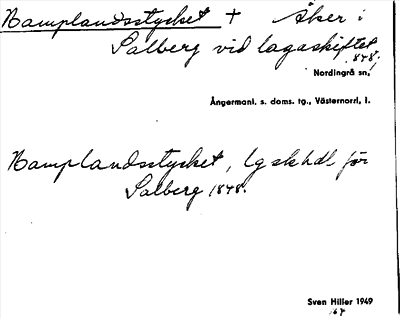 Hamplandsstycket + Åker i
Salberg vid lagaskiftet
1848;
Nordingrå sn,
Ångermanl. s. doms. tg., Västernorrl. l.
Hamplandsstycket, lgskhdl för
Salberg 1848.
Sven Hiller 1949